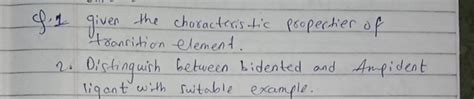 Q.1 given the characteristic properties of
transition element.
2. Distinguish between bidented and Ampident
ligant with suitable example.